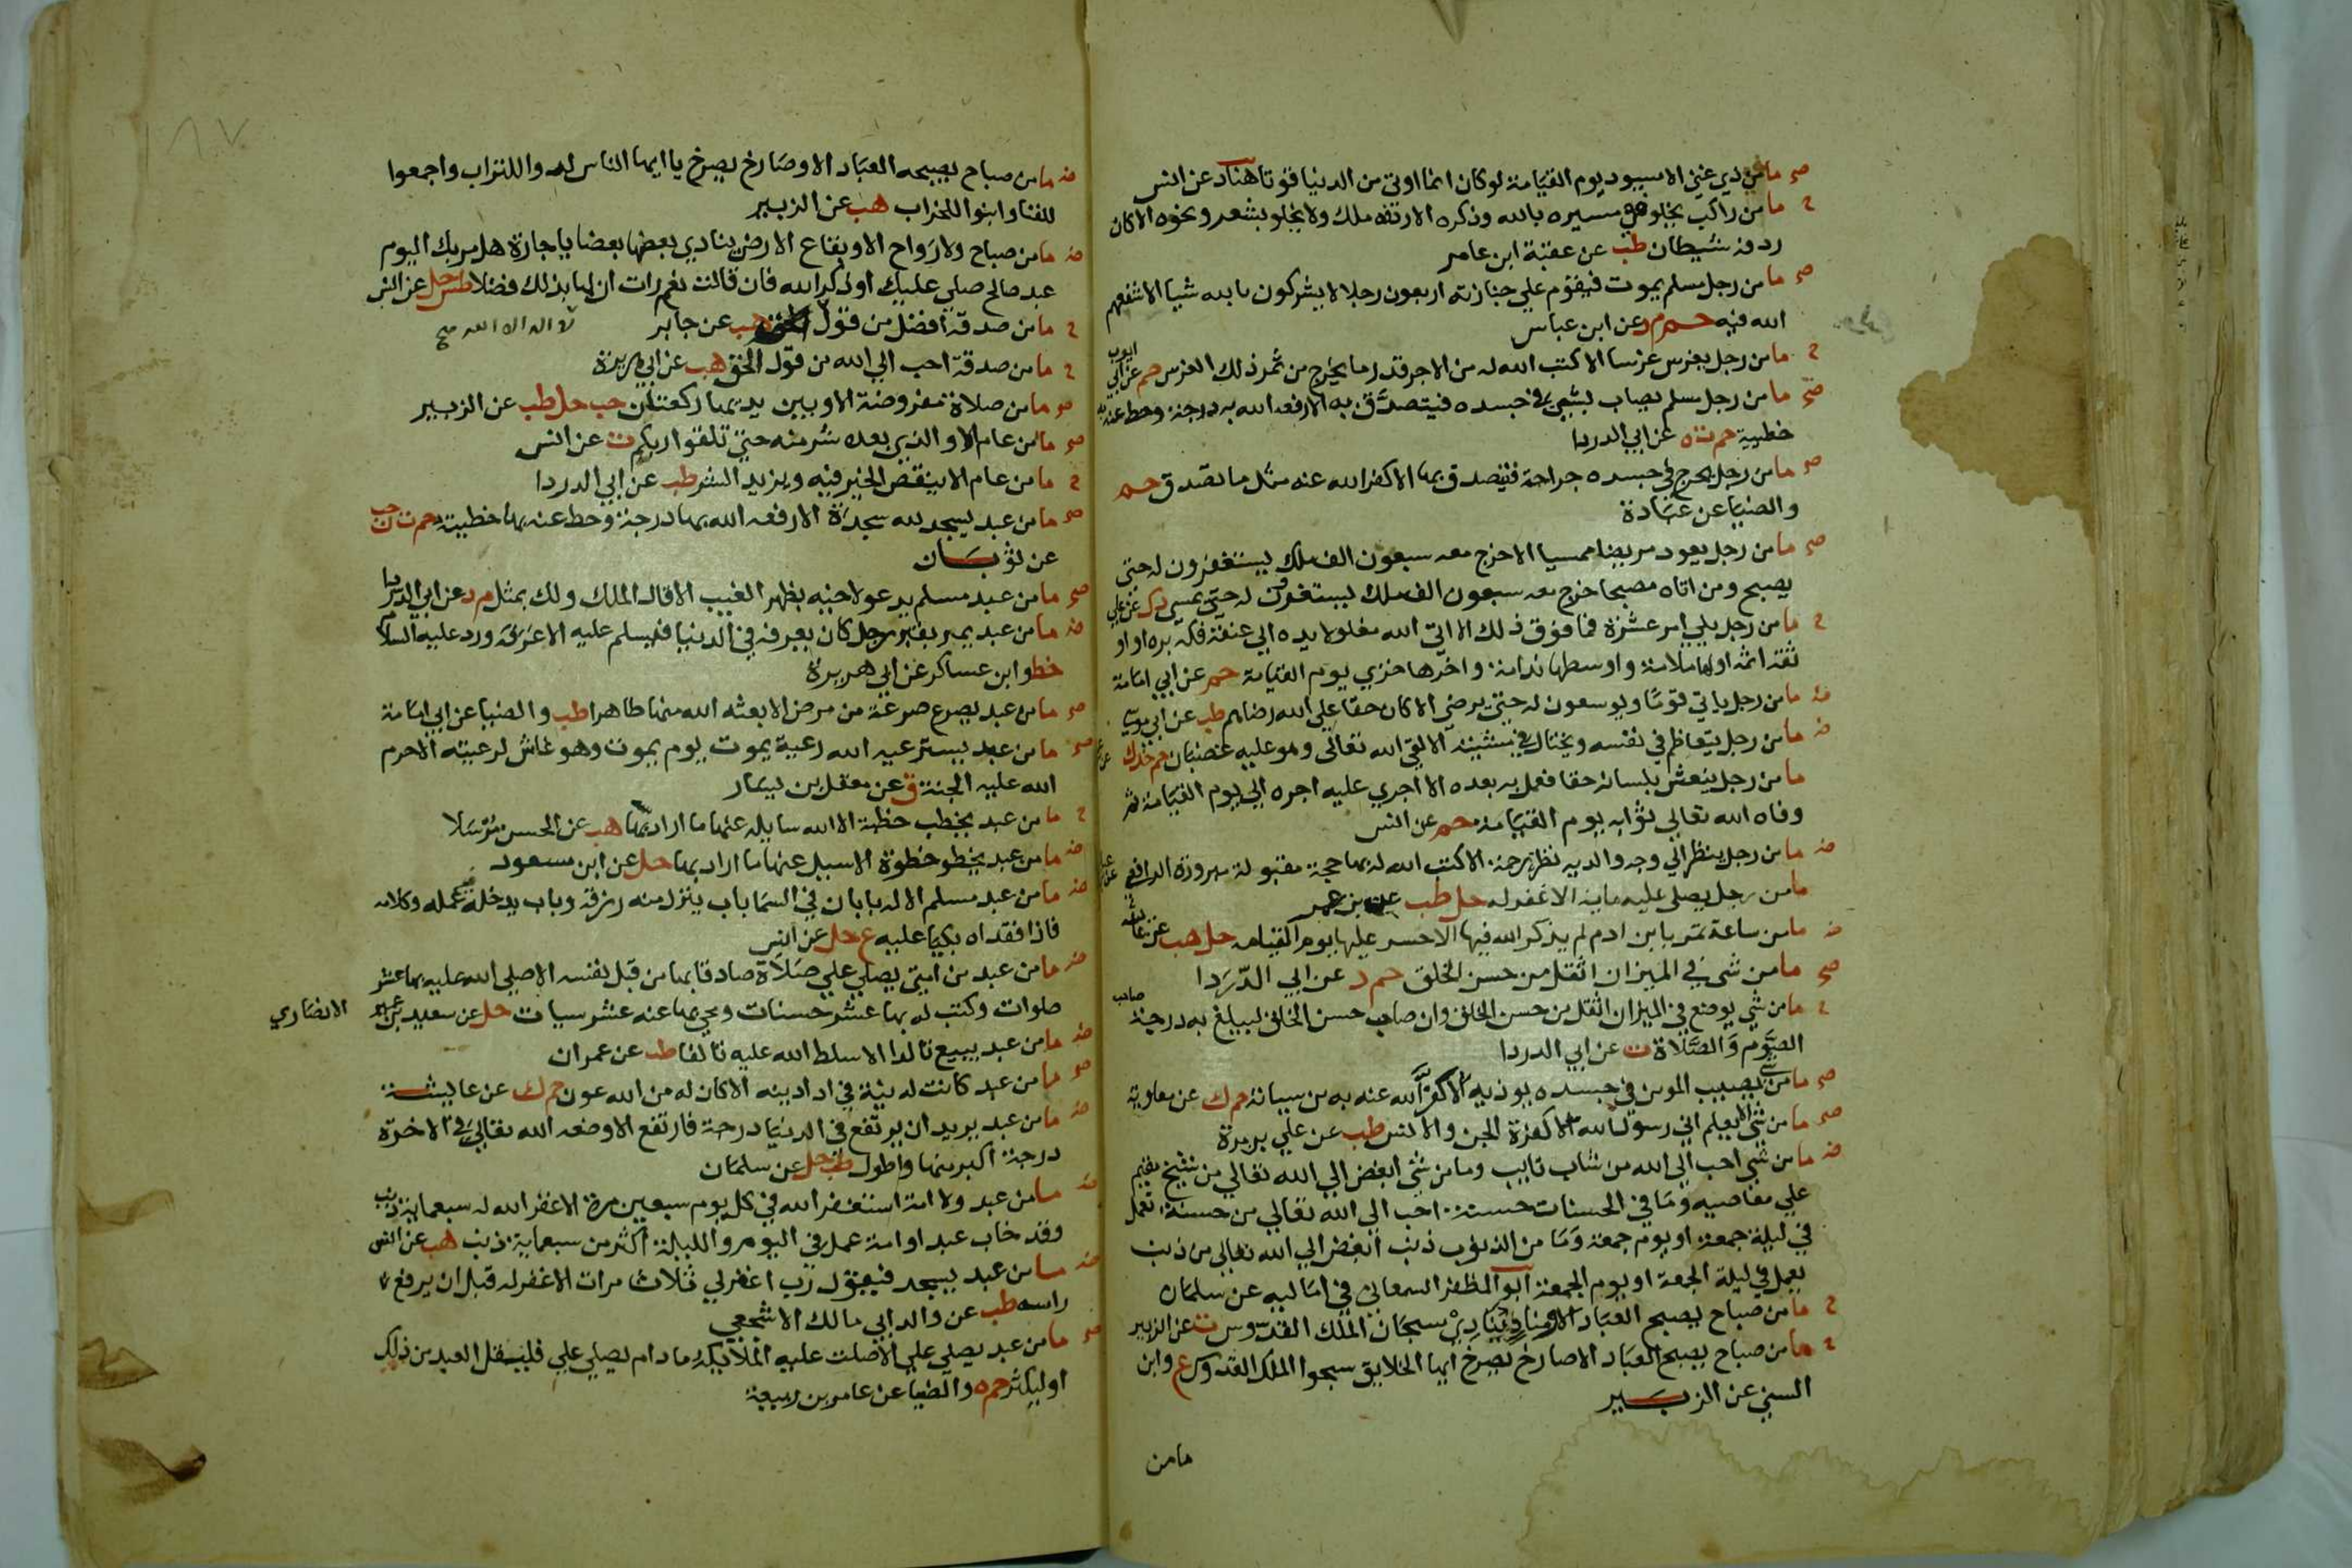 صح ما من ذي غني الا سيود يوم القيامة لو كان انما اوتي من الدنيا قوتا هناد عن انس
ح ما من راكب يخلو في مسيره بالله وذكره الا ردفه ملك ولا يخلو بشعر ونحوه الا كان
ردفه شيطان طب عن عقبة ابن عامر
صح ما من رجل مسلم يموت فيقوم علي جنازته اربعون رجلا لا يشركون بالله شيا الا شفعهم
الله فيه حم م د عن ابن عباس
ح ما من رجل يغرس غرسا الا كتب الله له من الاجر قدر ما يخرج من ثمر ذلك الغرس حم عن ابي ايوب
صح ما من رجل مسلم يصاب بشي في جسده فيتصدق به الا رفعه الله به درجة وحط عنه به
خطيية حم ت ه عن ابي الدردا
صح ما من رجل يجرح في جسده جراحة فيتصدق بها الا كفر الله عنه مثل ما تصدق حم
والضيا عن عبادة
صح ما من رجل يعود مريضا ممسيا الا خرج معه سبعون الف ملك يستغفرون له حتي
يصبح ومن اتاه مصبحا خرج معه سبعون الف ملك يستغفرون له حتي يمسي د ك عن علي
ح ما من رجل يلي امر عشرة فما فوق ذلك الا اتي الله مغلولا يده الي عنقه فكه بره او او
ثقه اثمه اولها ملامة واوسطها ندامة واخرها خزي يوم القيامة حم عن ابي امامة
ض ما من رجل ياتي قوما ويوسعون له حتي يرضي الا كان حقا علي الله رضاهم طب عن ابي موسي
ض ما من رجل يتعاظم في نفسه ويختال في مشيته الا لقي الله تعالي وهو عليه غضبان حم خد ك
ما من رجل ينعش بلسانه حقا فعمل به بعده الا اجري عليه اجره الي يوم القيامة ثم
وفاه الله تعالي ثوابه يوم القيامة حم عن انس
ض ما من رجل ينظر الي وجه والديه نظر رحمة الا كتب الله له بها حجة مقبولة مبرورة الرافعي
ما من رجل يصلي عليه ماية الا غفر له حل طب عن بن عمر
ض ما من ساعة تمر بابن ادم لم يذكر الله فيها الا حسر عليها يوم القيامه حل هب عن عائشة
صح ما من شي في الميزان اثقل من حسن الخلق حم د عن ابي الدردا
ح ما من شي يوضع في الميزان اثقل من حسن الخلق وان صاحب حسن الخلق ليبلغ به درجة صاحب
الصوم والصلاة ت عن ابي الدردا
صح ما من شي يصيب المومن في جسده يوذيه الا كفر الله عنه به من سياته حم ك عن معاوية
صح ما من شي الا يعلم اني رسول الله الا كفرة الجن والانس طب عن علي بن مرة
ض ما من شي احب الي الله من شاب تايب وما من شي ابغض الي الله تعالي من شيخ مقيم
علي معاصيه وما في الحسنات حسنة احب الي الله تعالي من حسنة تعمل
في ليلة جمعة او يوم جمعة وما من الذنوب ذنب ابغض الي الله تعالي من ذنب
يعمل في ليلة الجمعة او يوم الجمعة ابو المظفر السمعاني في اماليه عن سلمان
ح ما من صباح يصبح العباد الا مناد ينادي سبحان الملك القدوس ت عن الزبير
ح ما من صباح يصبح العباد الا صارخ يصرخ ايها الخلايق سبحوا الملك القدوس ع وابن
السني عن الزبير
ما من
١٨٧
ض ما من صباح يصبحه العباد الا وصارخ يصرخ يا ايها الناس لدوا للتراب واجمعوا
للفنا وابنوا للخراب هب عن الزبير
ض ما من صباح ولا رواح الا وبقاع الارض ينادي بعضها بعضا يا جارة هل مر بك اليوم
عبد صالح صلي عليك او ذكر الله فان قالت نعم رات ان لها بذلك فضلا طس حل عن انس
ح ما من صدقة افضل من قول هب عن جابر لا اله الا الله صح
ح ما من صدقة احب الي الله من قول الحق هب عن ابي هريرة
صح ما من صلاة مفروضة الا وبين يديها ركعتان حب حل طب عن الزبير
صح ما من عام الا والذي بعده شر منه حتي تلقوا ربكم ت عن انس
ح ما من عام الا ينقص الخير فيه ويزيد الشر طب عن ابي الدردا
صح ما من عبد يسجد لله سجدة الا رفعه الله بها درجة وحط عنه بها خطيية حم ت ن حب
عن ثوبان
صح ما من عبد مسلم يدعو لاخيه بظهر الغيب الا قال الملك ولك بمثل م د عن ابي الدردا
ض ما من عبد يمر بقبر رجل كان يعرفه في الدنيا فيسلم عليه الا عرفه ورد عليه السلام
خط وابن عساكر عن ابي هريرة
صح ما من عبد يصرع صرعة من مرض الا بعثه الله منها طاهرا طب والضيا عن ابي امامة
صح ما من عبد يسترعيه الله رعية يموت يوم يموت وهو غاش لرعيته الا حرم
الله عليه الجنة ق عن معقل بن يسار
ح ما من عبد يخطب خطبة الا الله سايله عنها ما اراد بها هب عن الحسن مرسلا
ض ما من عبد يخطو خطوة الا سيل عنها ما اراد بها حل عن ابن مسعود
ض ما من عبد مسلم الا له بابان في السما باب ينزل منه رزقه وباب يدخل فيه عمله وكلامه
فاذا فقداه بكيا عليه ع حل عن انس
ض ما من عبد من امتي يصلي علي صلاة صادقا بها من قبل نفسه الا صلي الله عليه بها عشر
صلوات وكتب له بها عشر حسنات ومحي بها عنه عشر سيات حل عن سعيد بن عمير الانصاري
ض ما من عبد يبيع تالدا الا سلط الله عليه تالفا طب عن عمران
صح ما من عبد كانت له نية في ادا دينه الا كان له من الله عون حم ك عن عايشة
ض ما من عبد يريد ان يرتفع في الدنيا درجة فارتفع الا وضعه الله تعالي في الاخرة
درجة اكبر منها واطول طب حل عن سلمان
ض ما من عبد ولا امة استغفر الله في كل يوم سبعين مرة الا غفر الله له سبعماية ذنب
وقد خاب عبد او امة عمل في اليوم والليلة اكثر من سبعماية ذنب هب عن انس
ض ما من عبد يسجد فيقول رب اغفر لي ثلاث مرات الا غفر له قبل ان يرفع
راسه طب عن والد ابي مالك الاشجعي
صح ما من عبد يصلي علي الا صلت عليه الملايكة ما دام يصلي علي فليقل العبد من ذلك
او ليكثر حم ه والضيا عن عامر بن ربيعة